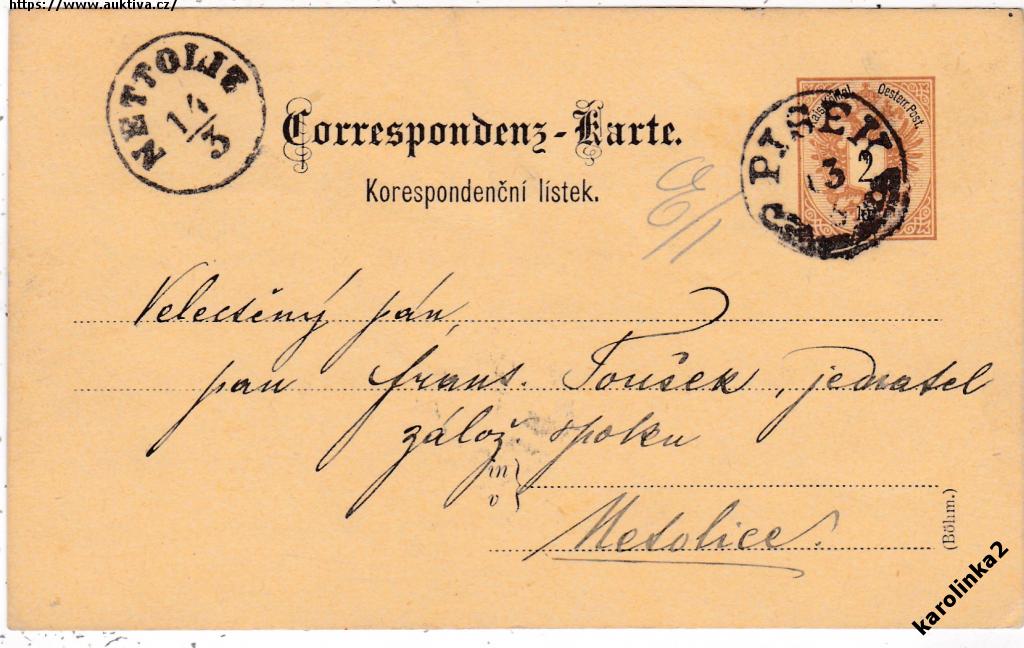 https://www.auktiva.cz/
NETTOLIZ
14/3
Correspondenz-Karte.
Korespondenční lístek.
Kais. Kön.
Oesterr. Post.
PISEK
E/1
Velectěný pán,
pan Frant. Toušek, jednatel
zálož. spolku
in
v
Netolice.
(Böhm.)
karolinka2